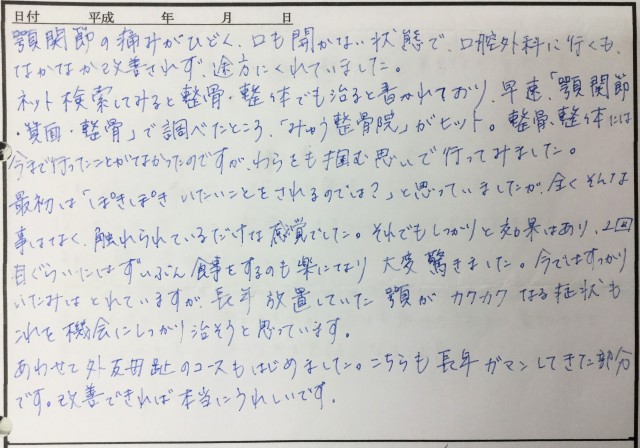 日付　平成　年　月　日
顎関節の痛みがひどく、口も開かない状態で、口腔外科に行くも、
なかなか改善されず、途方にくれていました。
ネット検索してみると整骨・整体でも治ると書かれており、早速、「顎関節
・箕面・整骨」で調べたところ、「みゅう整骨院」がヒット。整骨、整体には
今まで行ったことがなかったのですが、わらをも掴む思いで行ってみました。
最初は「ぽきぽき いたいことをされるのでは？」と思っていましたが、全くそんな
事はなく、触れられているだけな感覚でした。それでもしっかりと効果はあり、2回
目ぐらいにはずいぶん食事をするのも楽になり 大変驚きました。今ではすっかり
いたみはとれていますが、長年放置していた顎がカクカクなる症状も
これを機会にしっかり治そうと思っています。
あわせて外反母趾のコースもはじめました。こちらも長年ガマンしてきた部分
です。改善できれば本当にうれしいです。